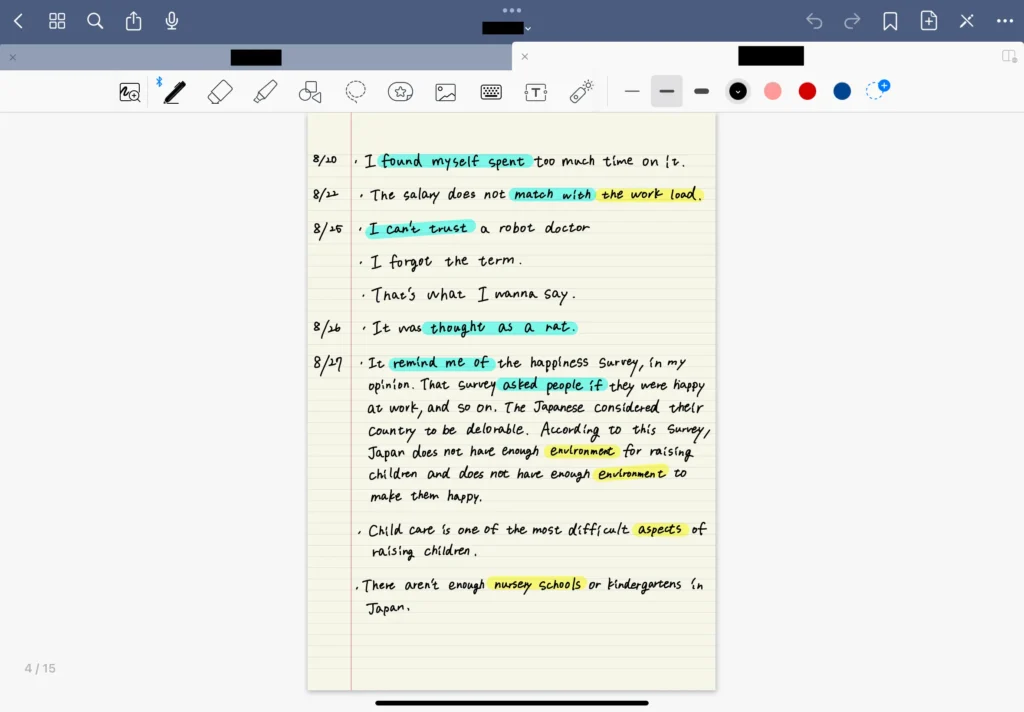 8/20 · I found myself spent too much time on it.
8/22 · The salary does not match with the work load.
8/25 · I can't trust a robot doctor
· I forgot the term.
· That's what I wanna say.
8/26 · It was thought as a rat.
8/27 · It remind me of the happiness survey, in my
opinion. That survey asked people if they were happy
at work, and so on. The Japanese considered their
country to be delorable. According to this survey,
Japan does not have enough environment for raising
children and does not have enough environment to
make them happy.
· Child care is one of the most difficult aspects of
raising children.
· There aren't enough nursery schools or kindergartens in
Japan.
4 / 15